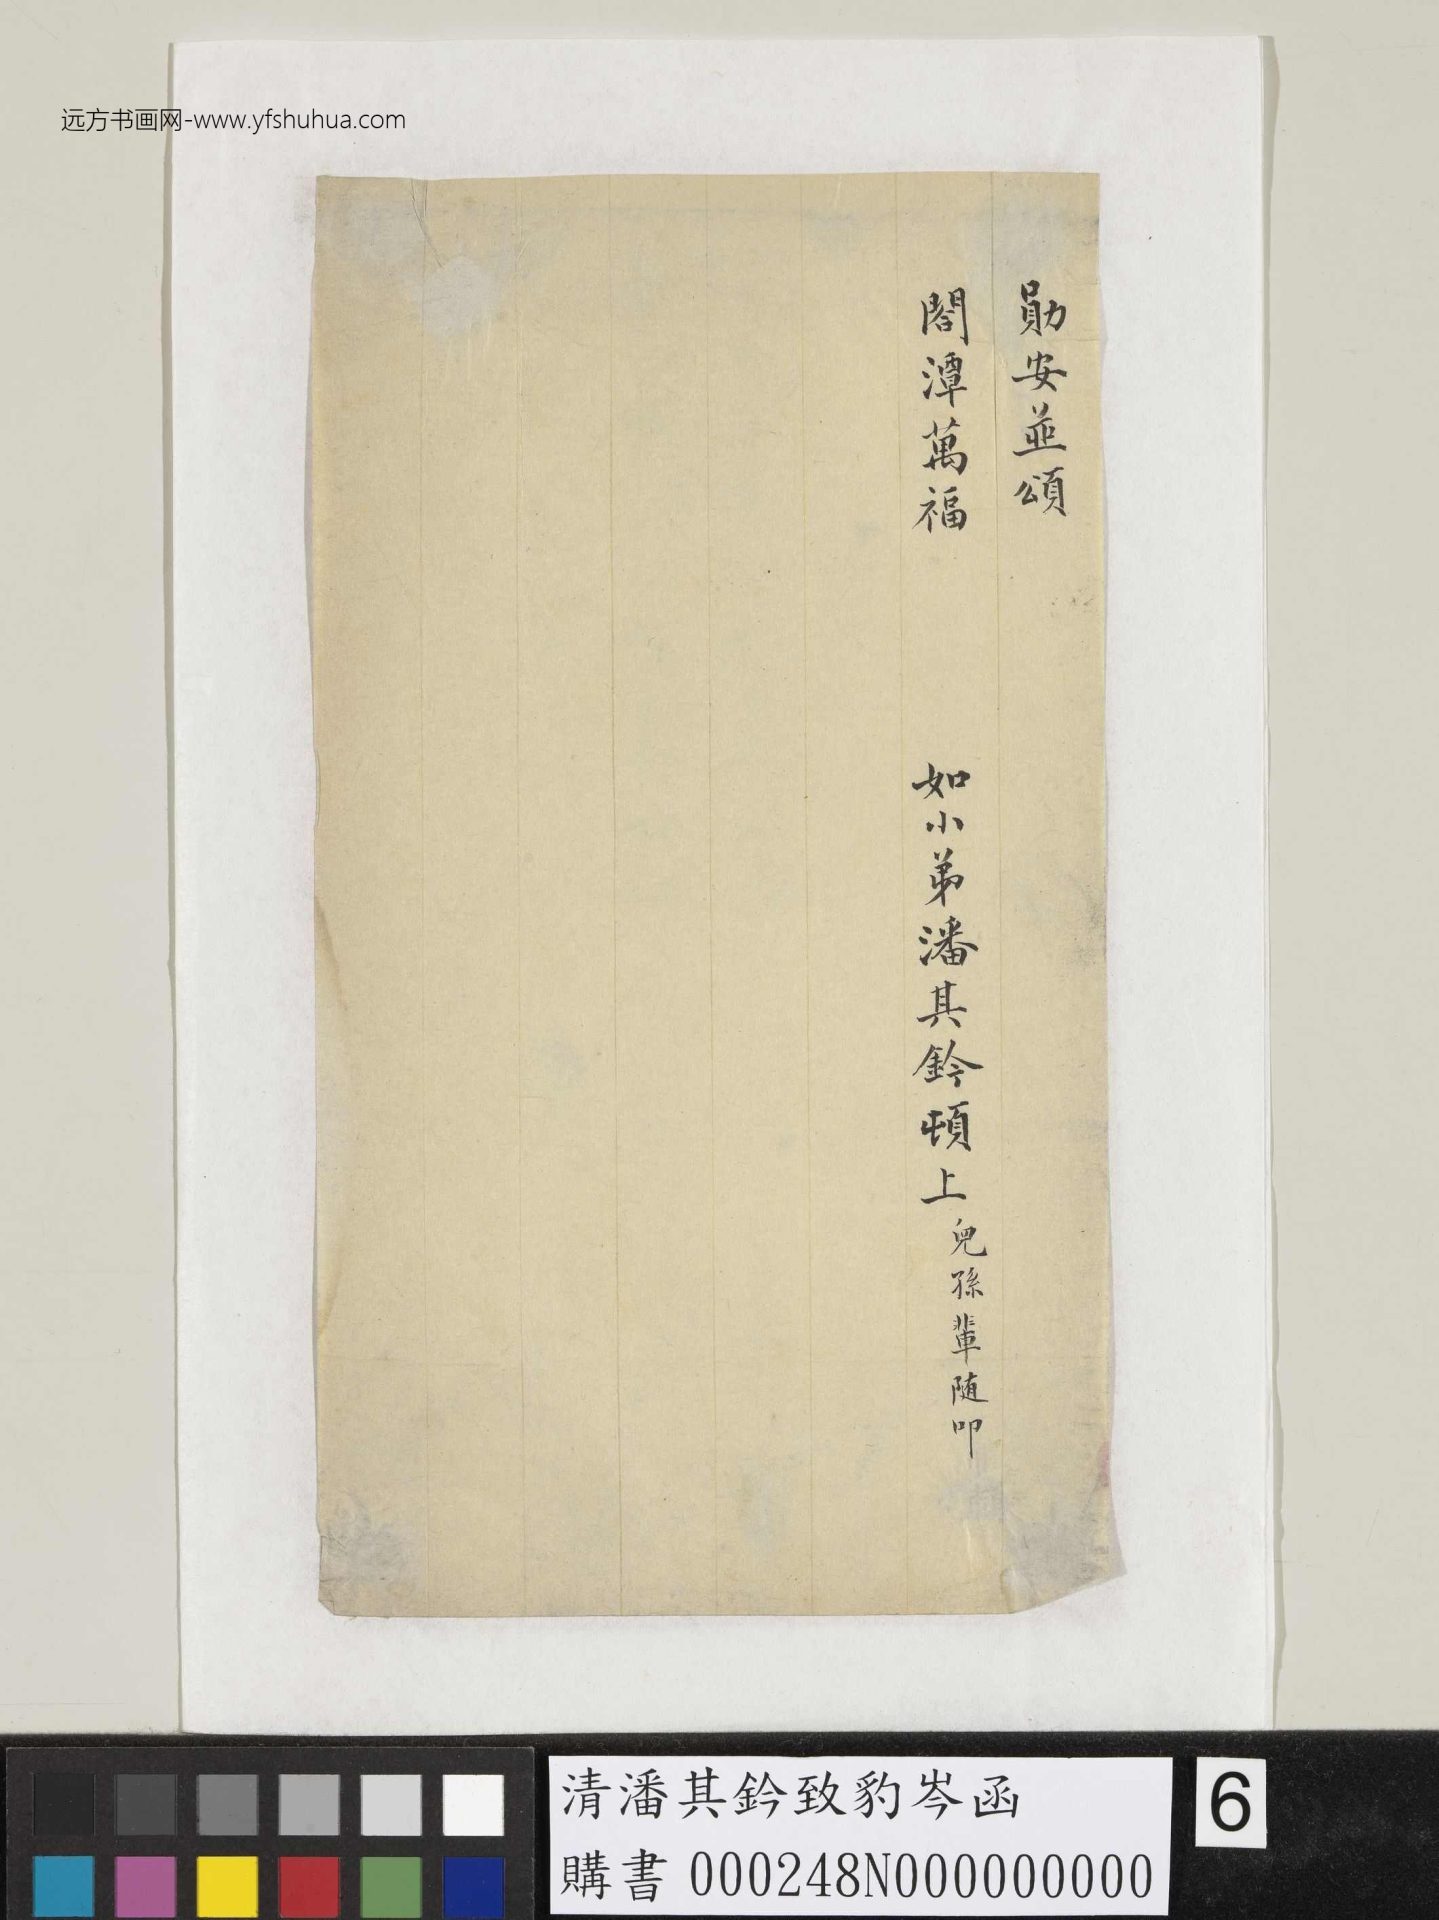 远方书画网-www.yfshuhua.com
勛安並頌
閤潭萬福
如小弟潘其鈐頓上
兒孫輩随叩
清潘其鈐致豹岑函
購書 000248N000000000
6